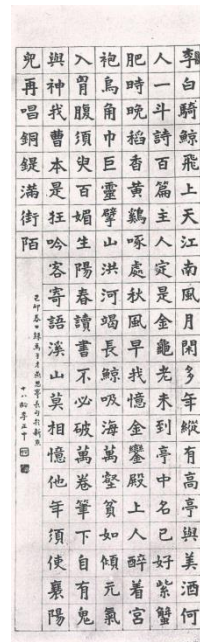 李白騎鯨飛上天江南風月閑多年縱有高亭與美酒何
人一斗詩百篇主人定是金龜老未到亭中名已好紫蟹
肥時晚稻香黃鷄啄處秋風早我憶金鑾殿上人醉着宮
袍烏角巾巨靈擘山洪河竭長鯨吸海萬壑貧如傾元氣
入胃腹須臾百媚生陽春讀書不必破萬卷筆下自有鬼
與神我曹本是狂吟客寄語溪山莫相憶他年須使襄陽
兒再唱銅鍉滿街陌
己卯春日錄馬子才燕思亭長句於新京
十八齡李正中